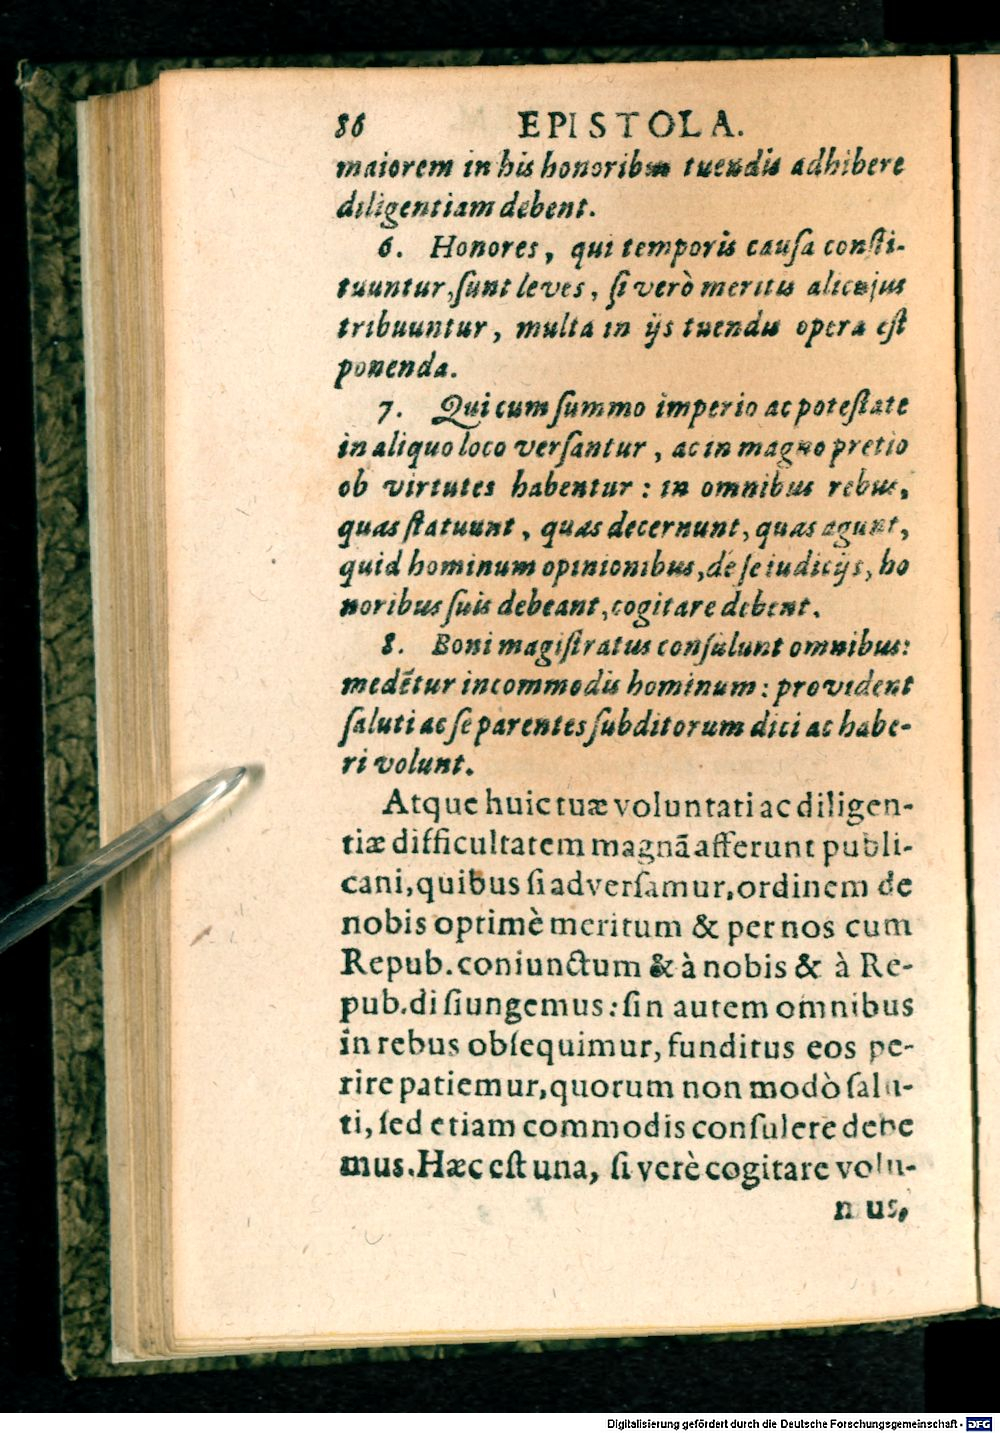 86 EPISTOLA.
maiorem in his honoribus tuendis adhibere
diligentiam debent.
6. Honores, qui temporis causa consti-
tuuntur, sunt leves, si verò meritis alicujus
tribuuntur, multa in ijs tuendis opera est
ponenda.
7. Qui cum summo imperio ac potestate
in aliquo loco versantur, ac in magno pretio
ob virtutes habentur: in omnibus rebus,
quas statuunt, quas decernunt, quas agunt,
quid hominum opinionibus, de se iudicijs, ho
noribus suis debeant, cogitare debent.
8. Boni magistratus consulunt omnibus:
medētur incommodis hominum: provident
saluti ac se parentes subditorum dici ac habe-
ri volunt.
Atque huic tuæ voluntati ac diligen-
tiæ difficultatem magnā afferunt publi-
cani, quibus si adversamur, ordinem de
nobis optimè meritum & per nos cum
Repub. coniunctum & à nobis & à Re-
pub. disiungemus: sin autem omnibus
in rebus obsequimur, funditus eos pe-
rire patiemur, quorum non modò salu-
ti, sed etiam commodis consulere debe
mus. Hæc est una, si verè cogitare volu-
mus,
Digitalisierung gefördert durch die Deutsche Forschungsgemeinschaft - DFG